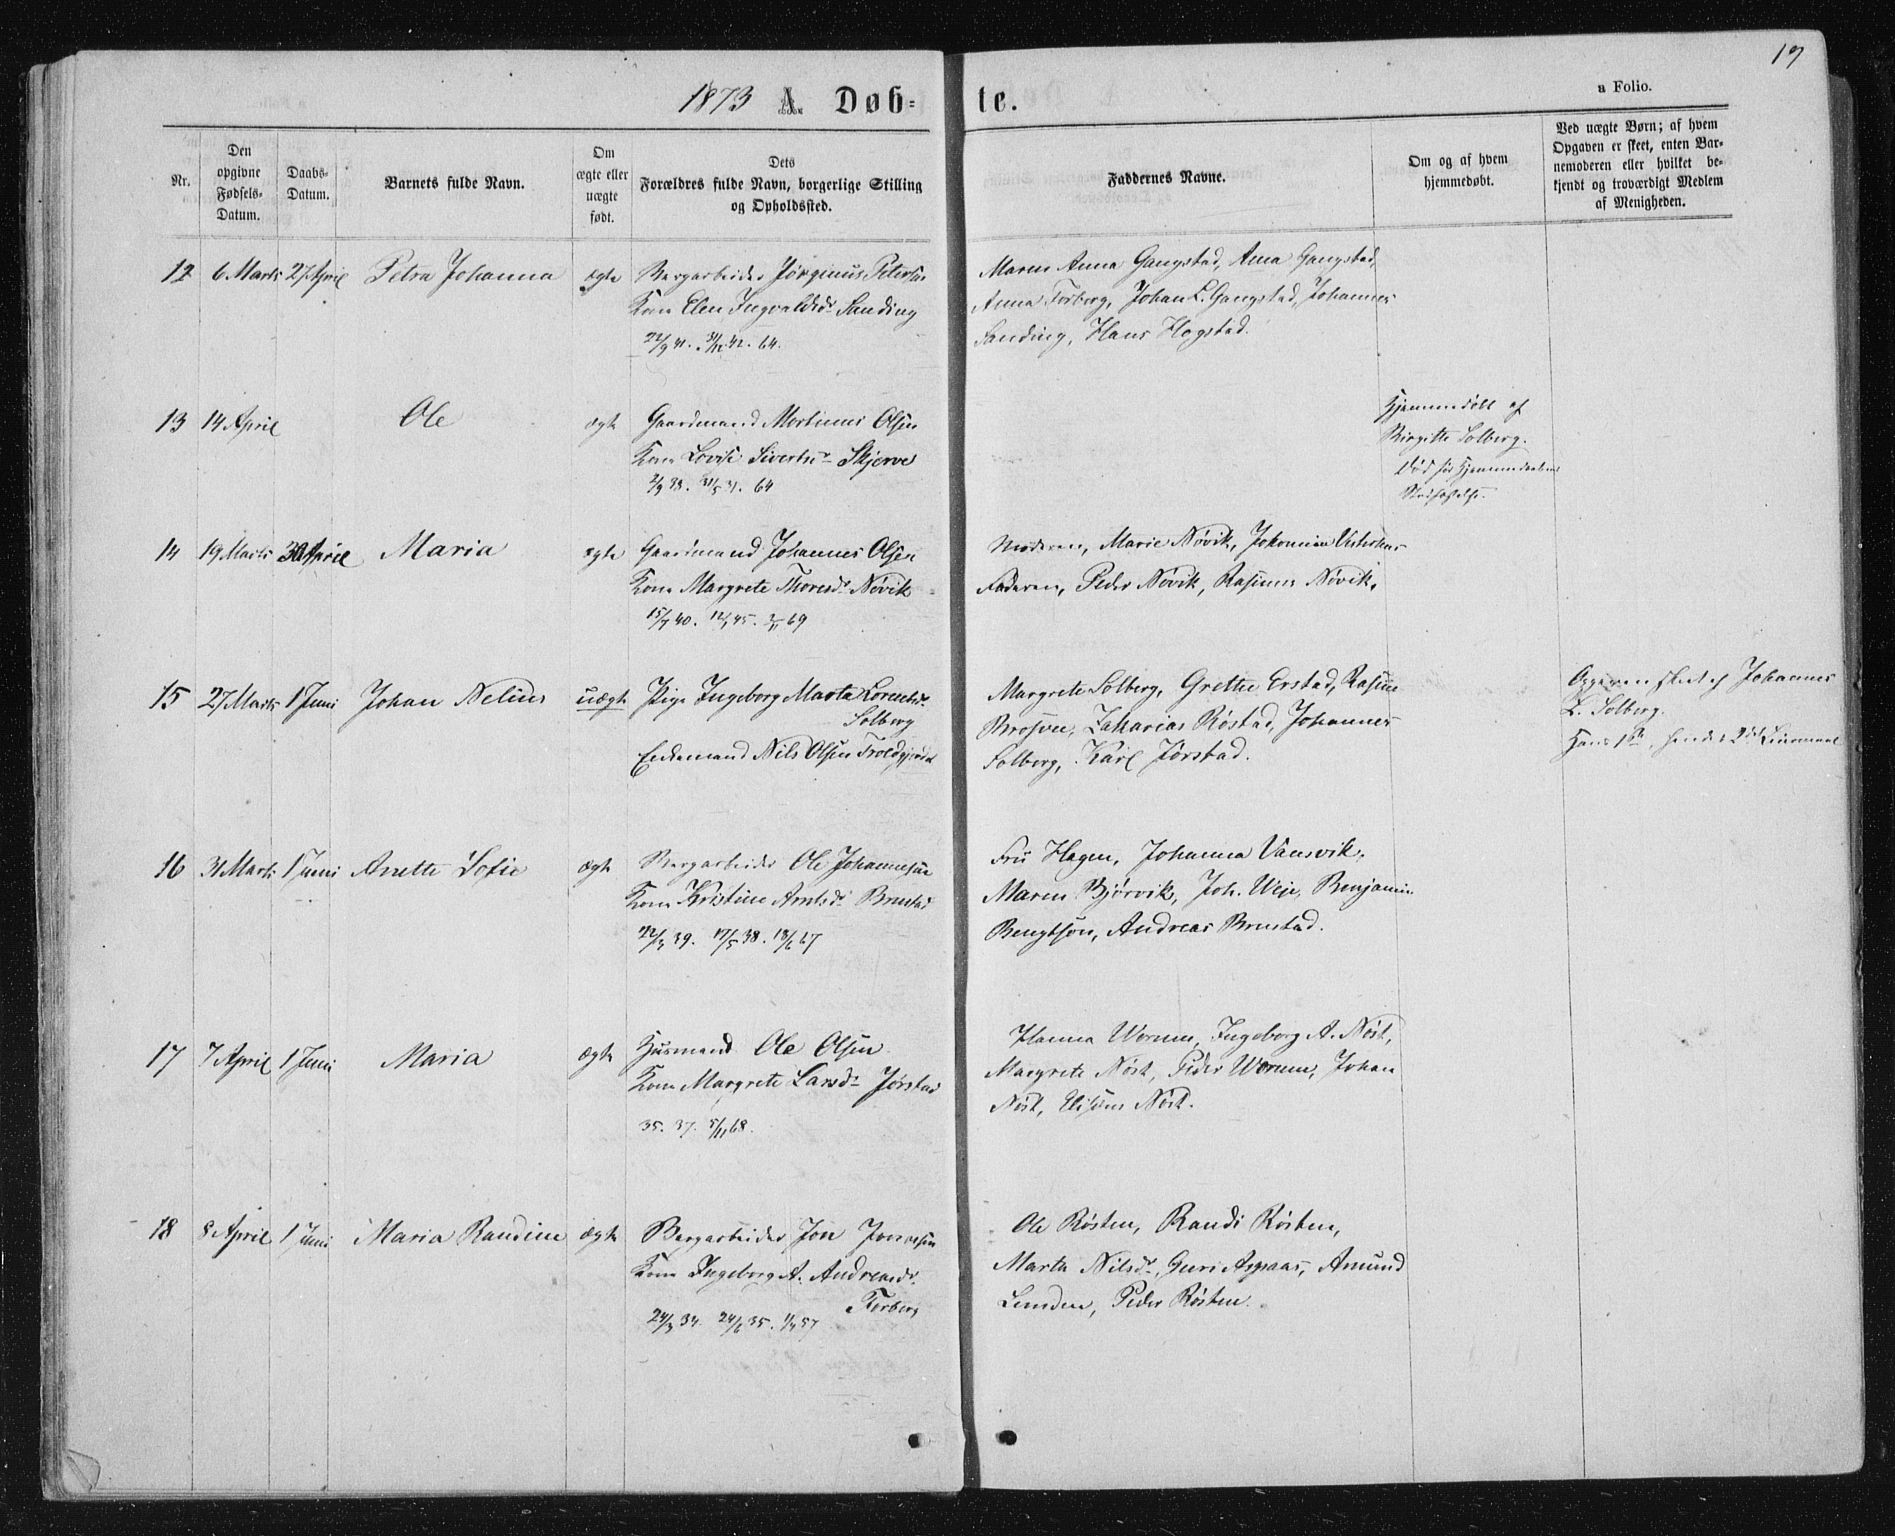 19
1873 A. Døb=te.
a Folio.
Nr.
Den opgivne Fødsels-Datum.
Daabs-Datum.
Barnets fulde Navn.
Om ægte eller uægte født.
Dets Forældres fulde Navn, borgerlige Stilling og Opholdssted.
Faddernes Navne.
Om og af hvem hjemmedøbt.
Ved uægte Børn; af hvem Opgaven er skeet, enten Barnemoderen eller hvilket bekjendt og troværdigt Medlem af Menigheden.
12 6 Marts 27 April Petra Johanna ægte Bergarbeider Jørginus Petersen
Kone Elen Ingvaldsdr Sanding
22/9 41. 31/12 42. 64.
Maren Anna Gangstad, Anna Gangstad,
Anna Forberg, Johan L. Gangstad, Johannes
Sanding, Hans Hogstad.
13 14 April Ole ægte Gaardmand Mortinus Olsen
Kone Lovise Sivertsdr Skjerve
2/9 38. 31/5 31. 64
Hjemmedøbt af
Birgitte Solberg.
Død før Hjemmedaabens
Stadfæstelse.
14 19 Marts 30 April Maria ægte Gaardmand Johannes Olsen
Kone Margrete Thoresdr Nøvik
15/7 40. 12/1 45. 2/11 69
Moderen, Marie Nøvik,
Faderen, Peder Nøvik, Rasmus Nøvik.
15 27 Marts 1 Juni Johan Nelius uægte Pige Ingeborg Marta Lorentsdr
Solberg
Enkemand Nils Olsen
Margrete Solberg, Grethe Erstad,
Zakarias Røstad, Johannes
Solberg, Karl Jørstad.
Opgaven skeet af Johannes
L. Solberg.
Hans 1ste, hendes 2det Leiermaal
16 31 Marts 1 Juni Anette Sofie ægte Bergarbeider Ole Johannesen
Kone Kristine Arntsdr Brustad
22/3 39. 17/5 38. 18/6 67
Fru Hagen, Johanna Vansvik,
Maren Bjørvik, Joh. Weie, Benjamin
Bengtson, Andreas Brustad.
17 7 April 1 Juni Maria ægte Husmand Ole Olsen
Kone Margrete Larsdr Jørstad
35. 37. 5/11 68.
Hanna Worum, Ingeborg A. Nøst,
Margrete Nøst, Peder Worum, Johan
Nøst, Elisæus Nøst.
18 8 April 1 Juni Maria Randine ægte Bergarbeider Jon Jonsen
Kone Ingeborg A. Andreasdr
Forberg
24/3 34. 24/6 35. 1/7 57
Ole Røsten, Randi Røsten,
Marta Nilsdr, Guri Aspaas, Amund
Lunden, Peder Røsten.